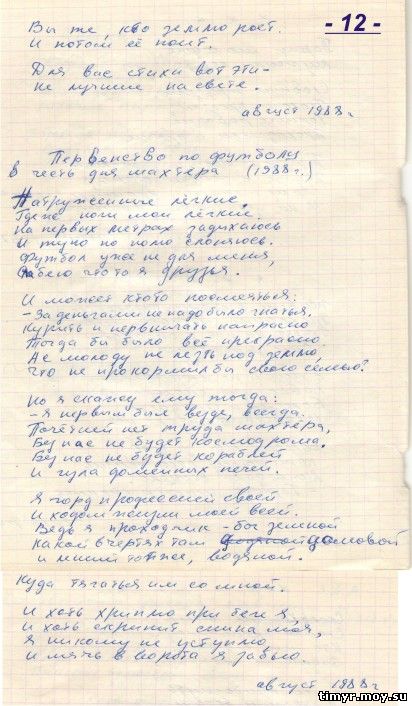 - 12 -
Вы же, кто землю роет.
И потом её поит.
Для вас стихи вот эти -
не лучшие на свете.
август 1988 г
Первенство по футболу
в честь дня шахтёра (1988 г.)
Натруженные лёгкие,
Где же ноги мои лёгкие.
На первых метрах задыхаюсь
И тупо по полю слоняюсь.
Футбол уже не для меня,
что то я друзья.
И может кто то посмеяться:
- За деньгами не надо было гнаться,
Курить и нервничать напрасно
Тогда бы было всё прекрасно
А с молоду не лезть под землю,
Что не прокормил бы свою семью?
Но я скажу ему тогда:
- Я первым был везде, всегда.
Почётней нет труда шахтёра,
Без нас не будет космодрома.
Без нас не будет кораблей
И гула доменных печей.
Я горд профессией своей
И ходом жизни моей всей.
Ведь я проходчик - бог земной
Какой в чертях там домовой
и леший тот же, водяной.
Куда тягаться им со мной.
И хоть хриплю при беге я,
И хоть скрипит спина моя,
Я никому не уступлю
И мячь в ворота я забью.
август 1988 г
timyr.moy.su